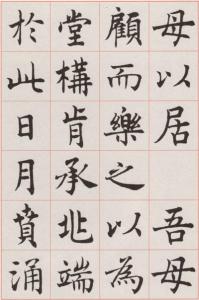 母以居 吾母
顧而樂之以為
堂構肯承兆端
於此日月墳涌